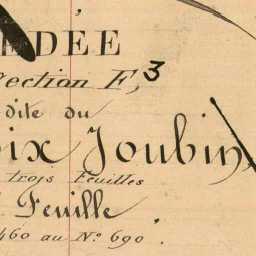 ÉDÉE
Section F, 3
dite du
oix Joubin
trois Feuilles
Feuille.
460 au N° 690.